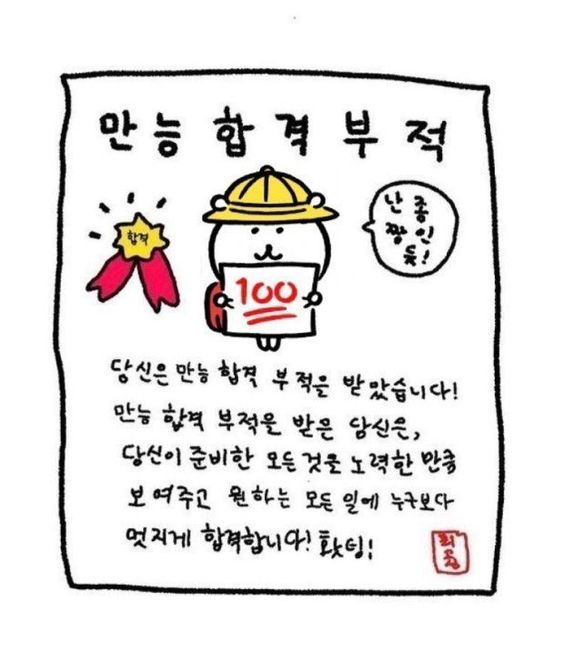 만능합격부적
합격
난 좀
짱인
듯!
100
당신은 만능 합격 부적을 받았습니다!
만능 합격 부적을 받은 당신은,
당신이 준비한 모든것을 노력한 만큼
보여주고 원하는 모든 일에 누구보다
멋지게 합격합니다! 홧팅!